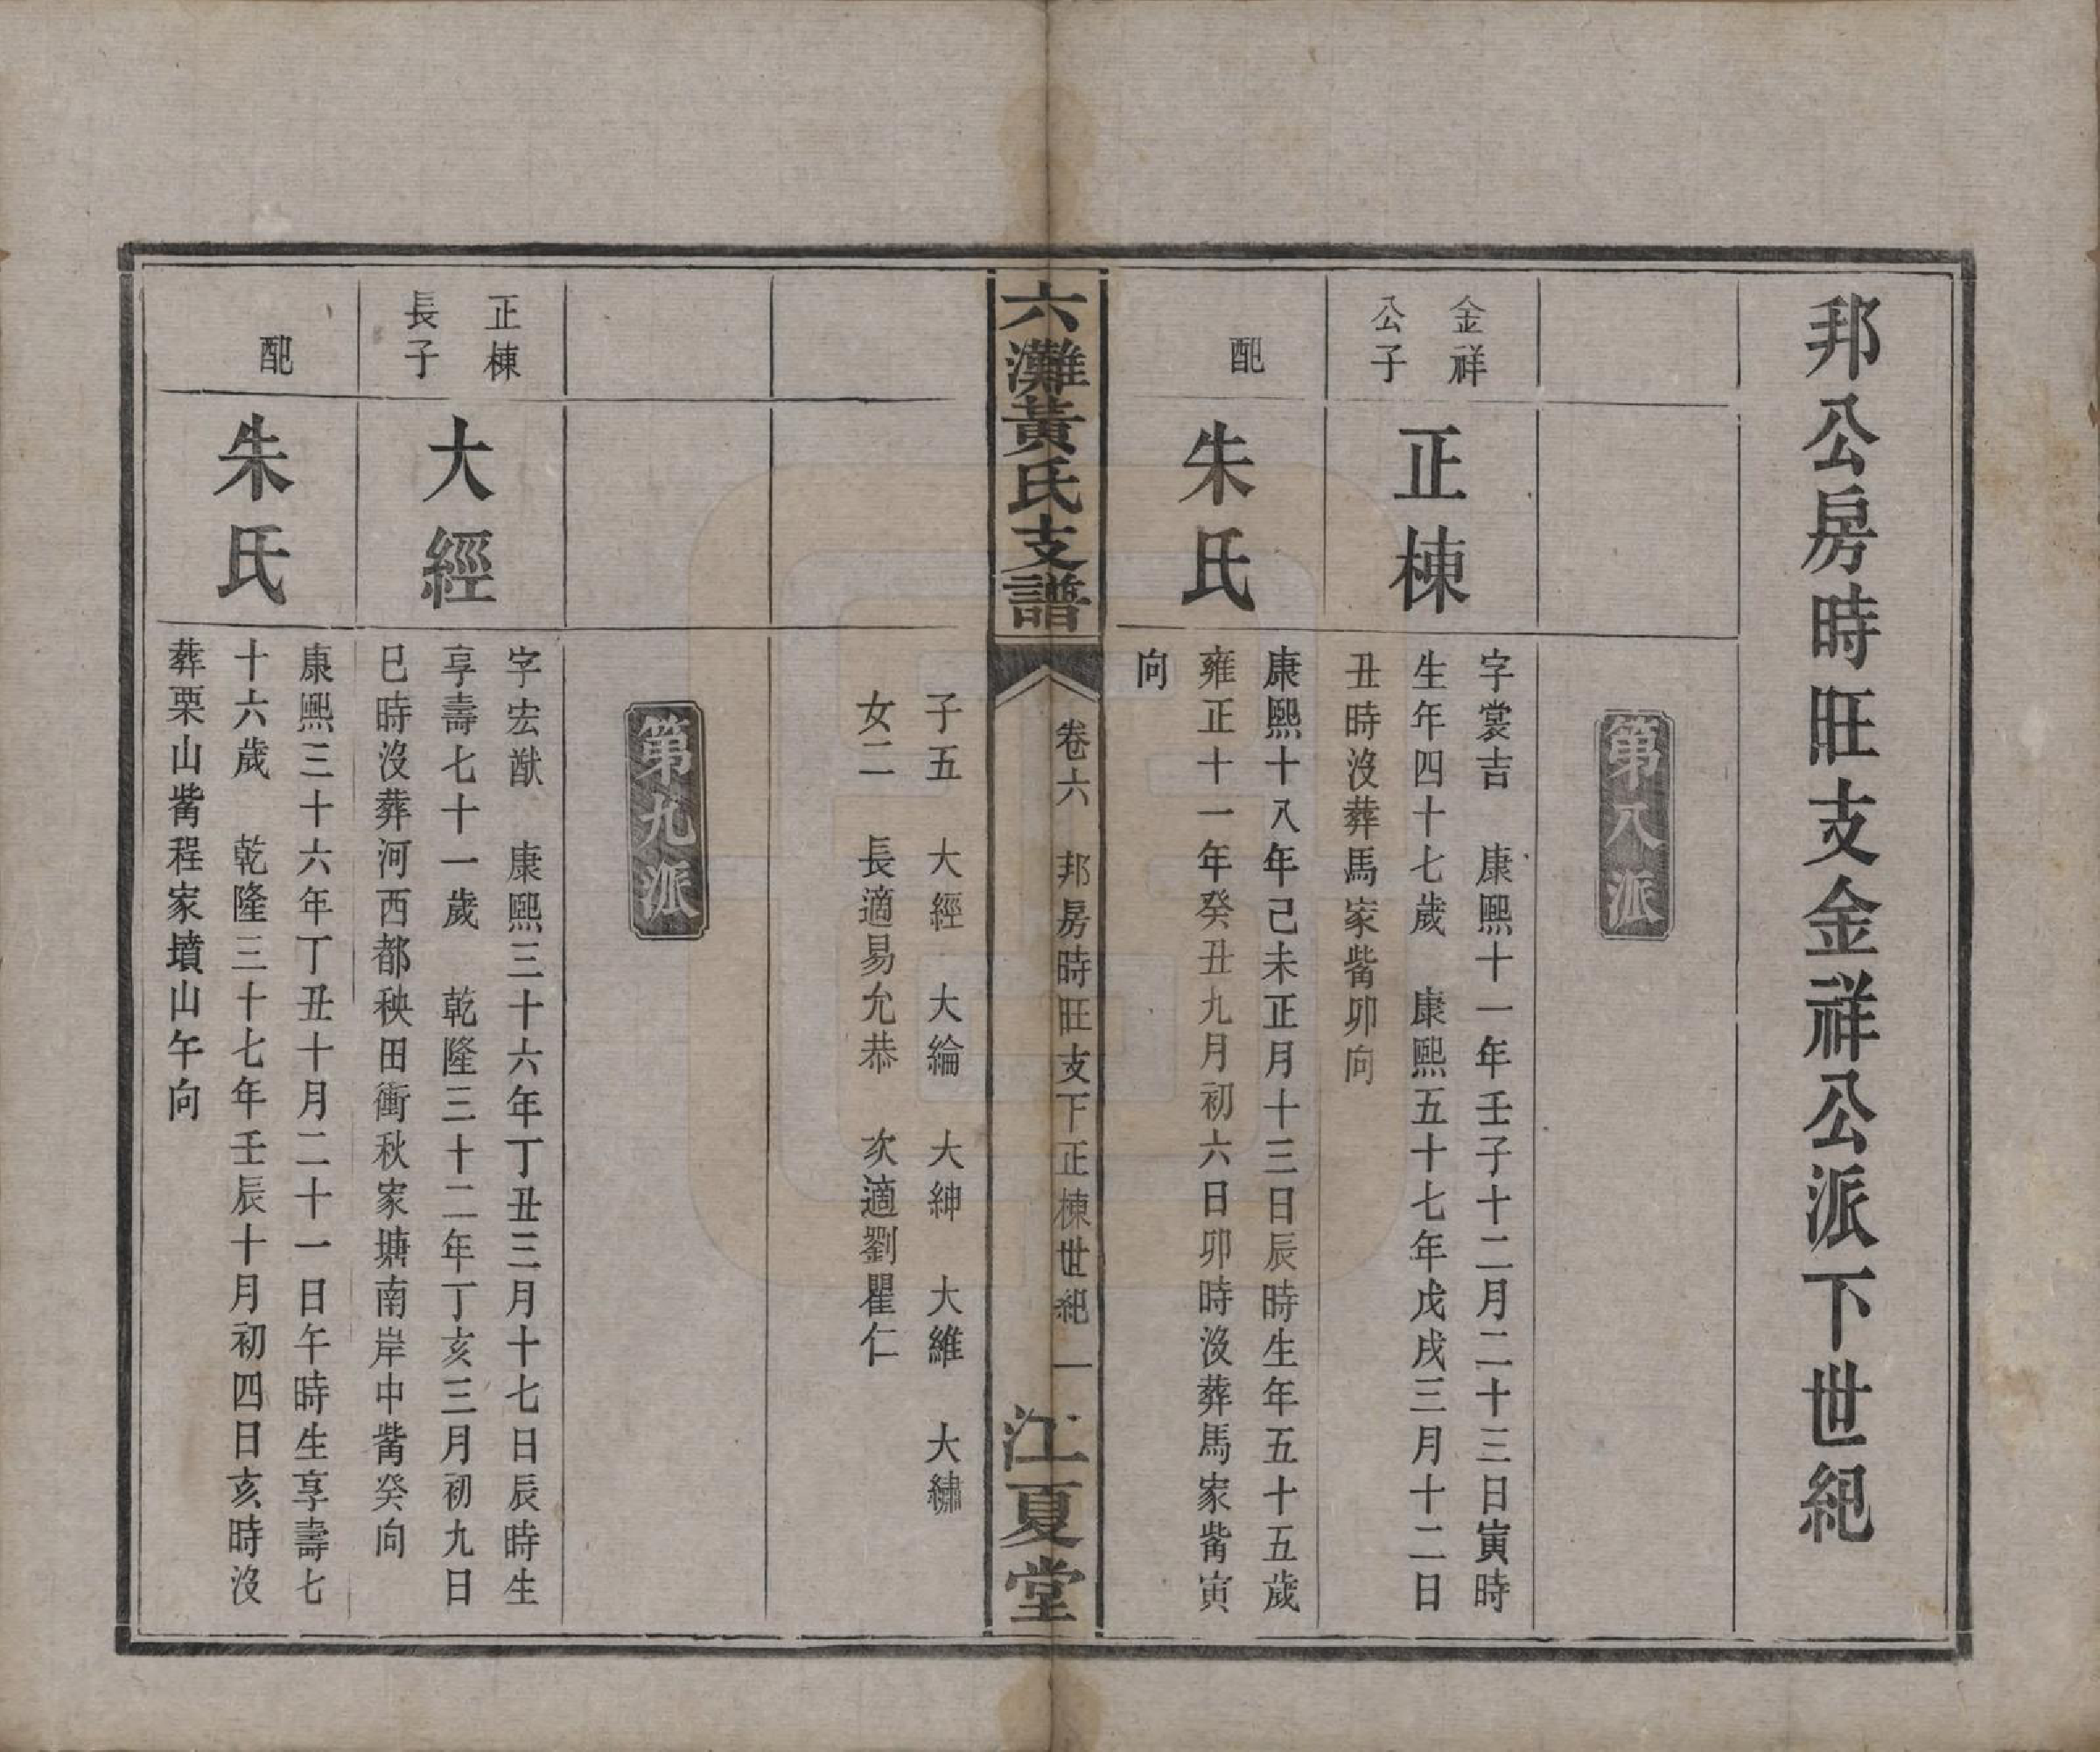 邦公房時旺支金祥公派下世紀
第八派
金祥
公子
正棟
字裳吉　康熙十一年壬子十二月二十三日寅時
生年四十七歲　康熙五十七年戊戌三月十二日
丑時沒葬馬家觜卯向
配
朱氏
康熙十八年己未正月十三日辰時生年五十五歲
雍正十一年癸丑九月初六日卯時沒葬馬家觜寅
向
六灘黃氏支譜
卷六　邦房時旺支下正棟世紀　一
江夏堂
子五　大經　大綸　大紳　大維　大繡
女二　長適易允恭　次適劉瞿仁
第九派
正棟
長子
大經
字宏猷　康熙三十六年丁丑三月十七日辰時生
享壽七十一歲　乾隆三十二年丁亥三月初九日
巳時沒葬河西都秧田衝秋家塘南岸中觜癸向
配
朱氏
康熙三十六年丁丑十月二十一日午時生享壽七
十六歲　乾隆三十七年壬辰十月初四日亥時沒
葬栗山觜程家墳山午向